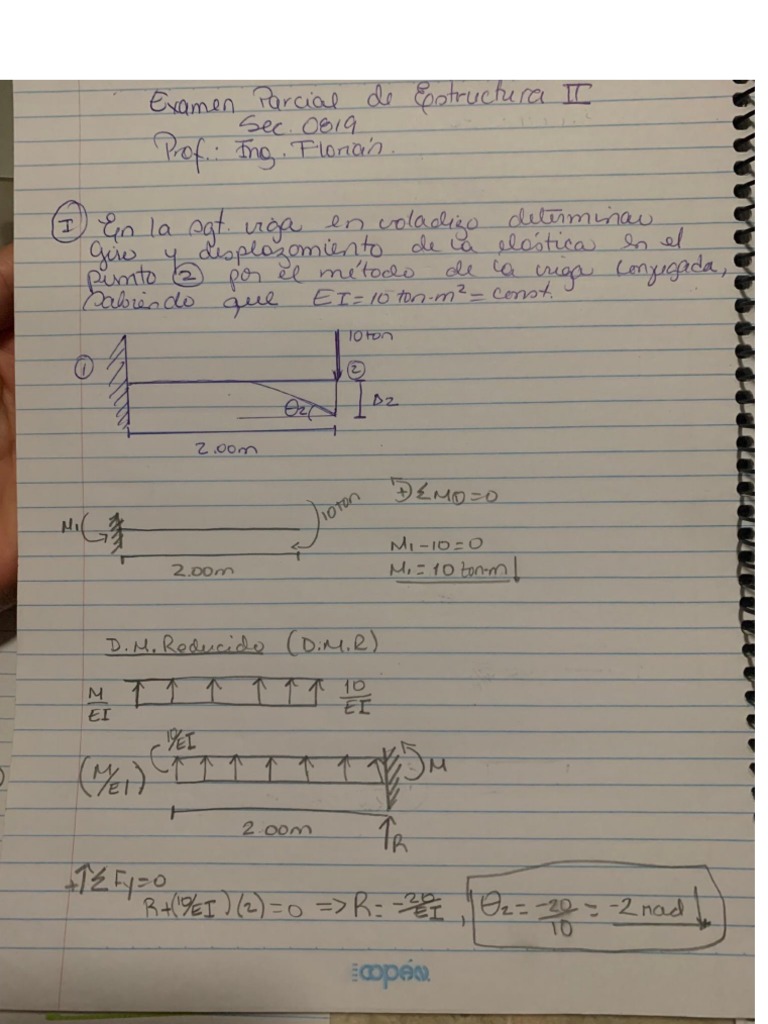 Examen Parcial de Estructura II
Sec. 0819
Prof.: Ing. Florián.
I En la sgt. viga en voladizo determinar
giro y desplazamiento de la elástica en el
punto 2 por el método de la viga conjugada,
sabiendo que EI = 10 ton·m² = const.
10 ton
1
2
θ2
Δ2
2.00m
M1
10 ton
+ ΣM① = 0
2.00m
M1 - 10 = 0
M1 = 10 ton·m ↓
D.M. Reducido (D.M.R)
M/EI
10/EI
10/EI
(M/EI)
M
2.00m
R
+↑ΣFy=0
R+(10/EI)(2)=0 => R = -20/EI, θ2 = -20/10 = -2 rad ↓
copén